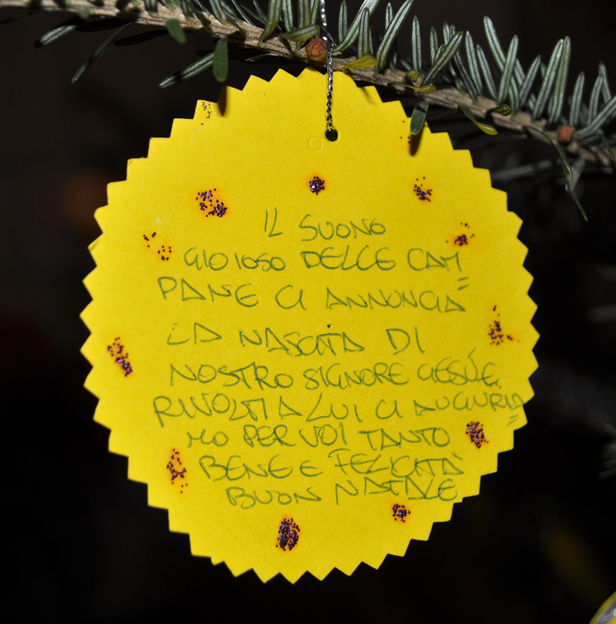 IL SUONO
GIOIOSO DELLE CAM
PANE CI ANNUNCIA=
LA NASCITA DI
NOSTRO SIGNORE GESÙ E
RIVOLTI A LUI CI AUGURIA=
MO PER VOI TANTO
BENE E FELICITÀ
BUON NATALE